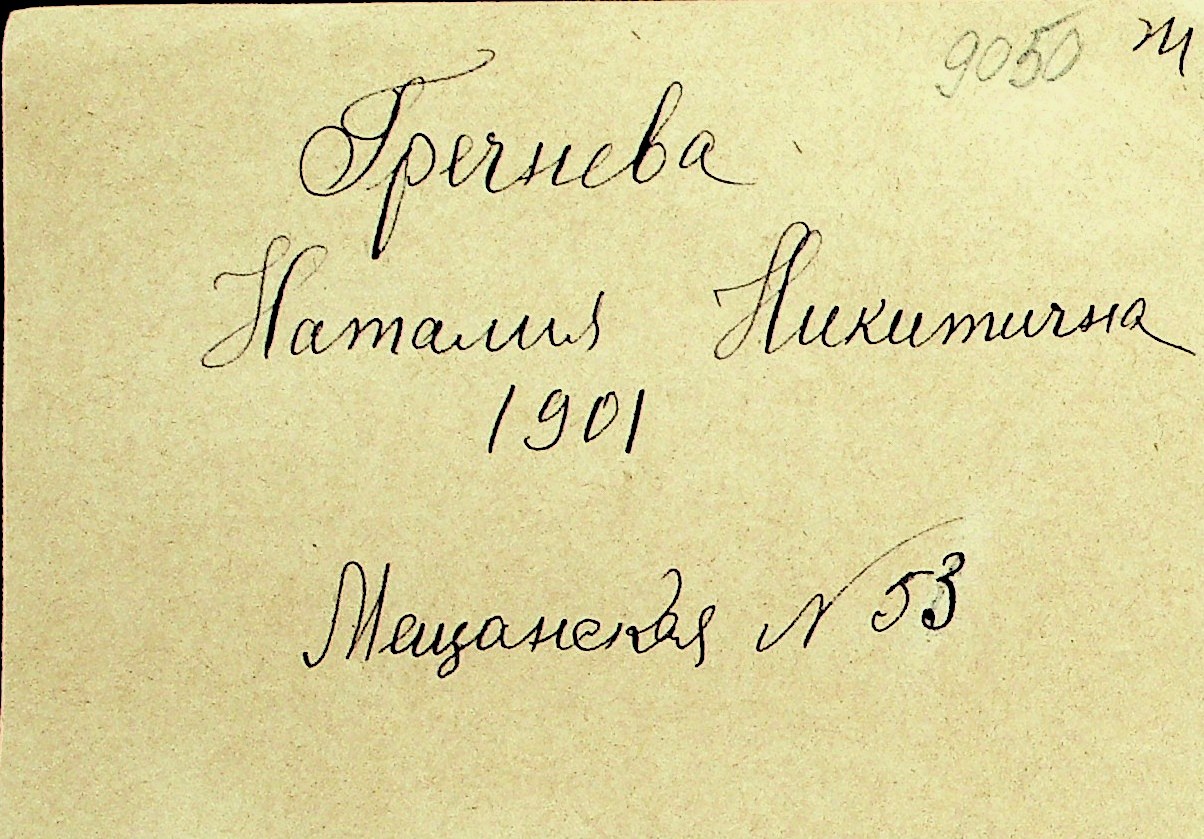 9050 ж
Гречнева
Наталия Никитична
1901
Мещанская N 53